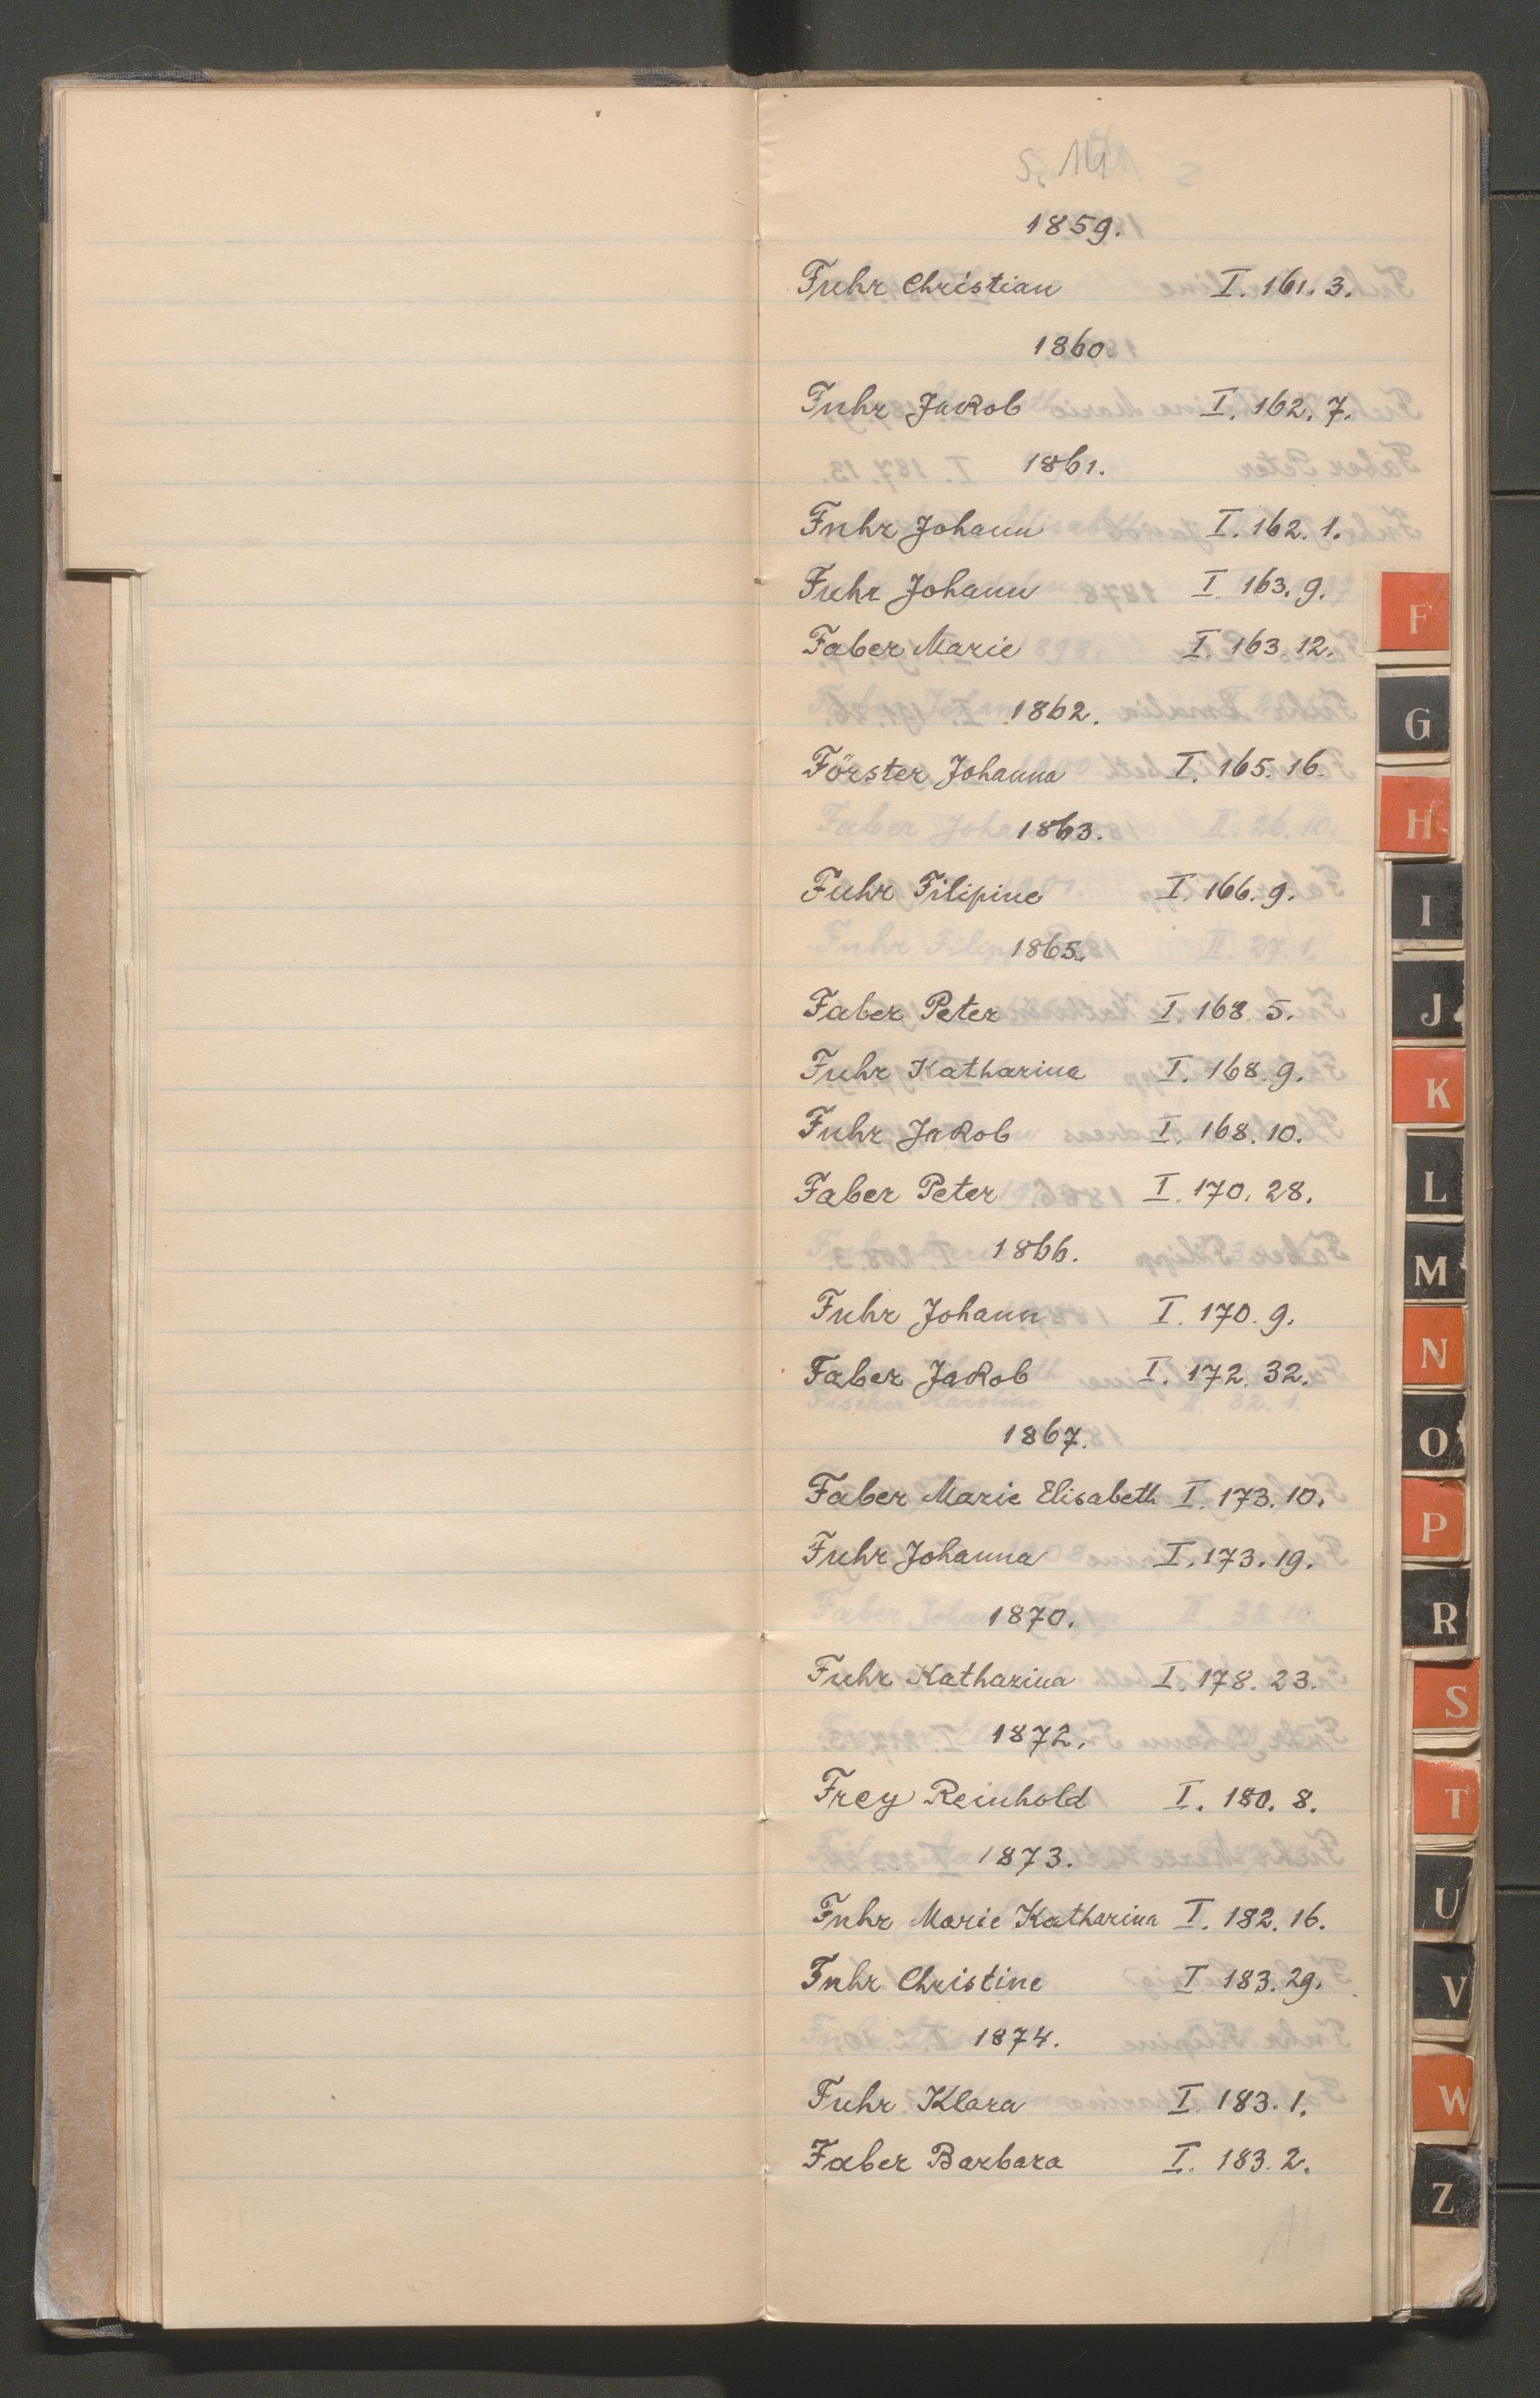 S. 14
1859.
Fuhr Christian I. 161. 3.
1860.
Fuhr Jakob I. 162. 7.
1861.
Fuhr Johann I. 162. 1.
Fuhr Johann I. 163. 9.
Faber Marie I. 163. 12.
1862.
Förster Johanna I. 165. 16.
1863.
Fuhr Filipine I. 166. 9.
1865.
Faber Peter I. 168. 5.
Fuhr Katharina I. 168. 9.
Fuhr Jakob I. 168. 10.
Faber Peter I. 170. 28.
1866.
Fuhr Johann I. 170. 9.
Faber Jakob I. 172. 32.
1867.
Faber Marie Elisabeth I. 173. 10.
Fuhr Johanna I. 173. 19.
1870.
Fuhr Katharina I. 178. 23.
1872.
Frey Reinhold I. 180. 8.
1873.
Fuhr Marie Katharina I. 182. 16.
Fuhr Christine I. 183. 29.
1874.
Fuhr Klara I. 183. 1.
Faber Barbara I. 183. 2.
14
F
G
H
I
J
K
L
M
N
O
P
R
S
T
U
V
W
Z